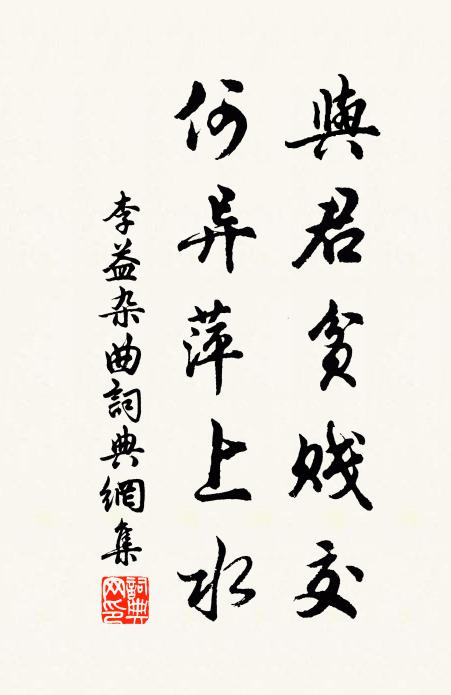 與君貧贱交
何异萍上水
李益杂曲詞典網集
詞典
网印